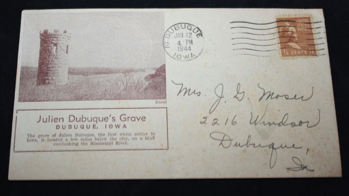 DUBUQUE
JUN 12
4 PM
1944
IOWA
1½ CENTS
Julien Dubuque's Grave
DUBUQUE, IOWA
The grave of Julien Dubuque, the first white settler in
Iowa, is located a few miles below the city, on a bluff
overlooking the Mississippi River.
Mrs. J. G. Moser
2216 Windsor
Dubuque,
Ia